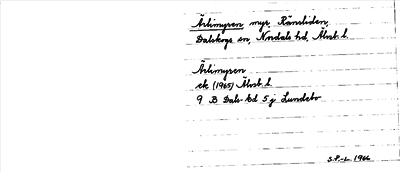 Ärtimyren myr, Ränsliden,
Dalskogs sn, Nordals hd, Älvsb. l.
Ärtimyren
ek (1965) Älvsb. l.
9 B Dals-Ed 5 j Lundebo
S.P.-L. 1966